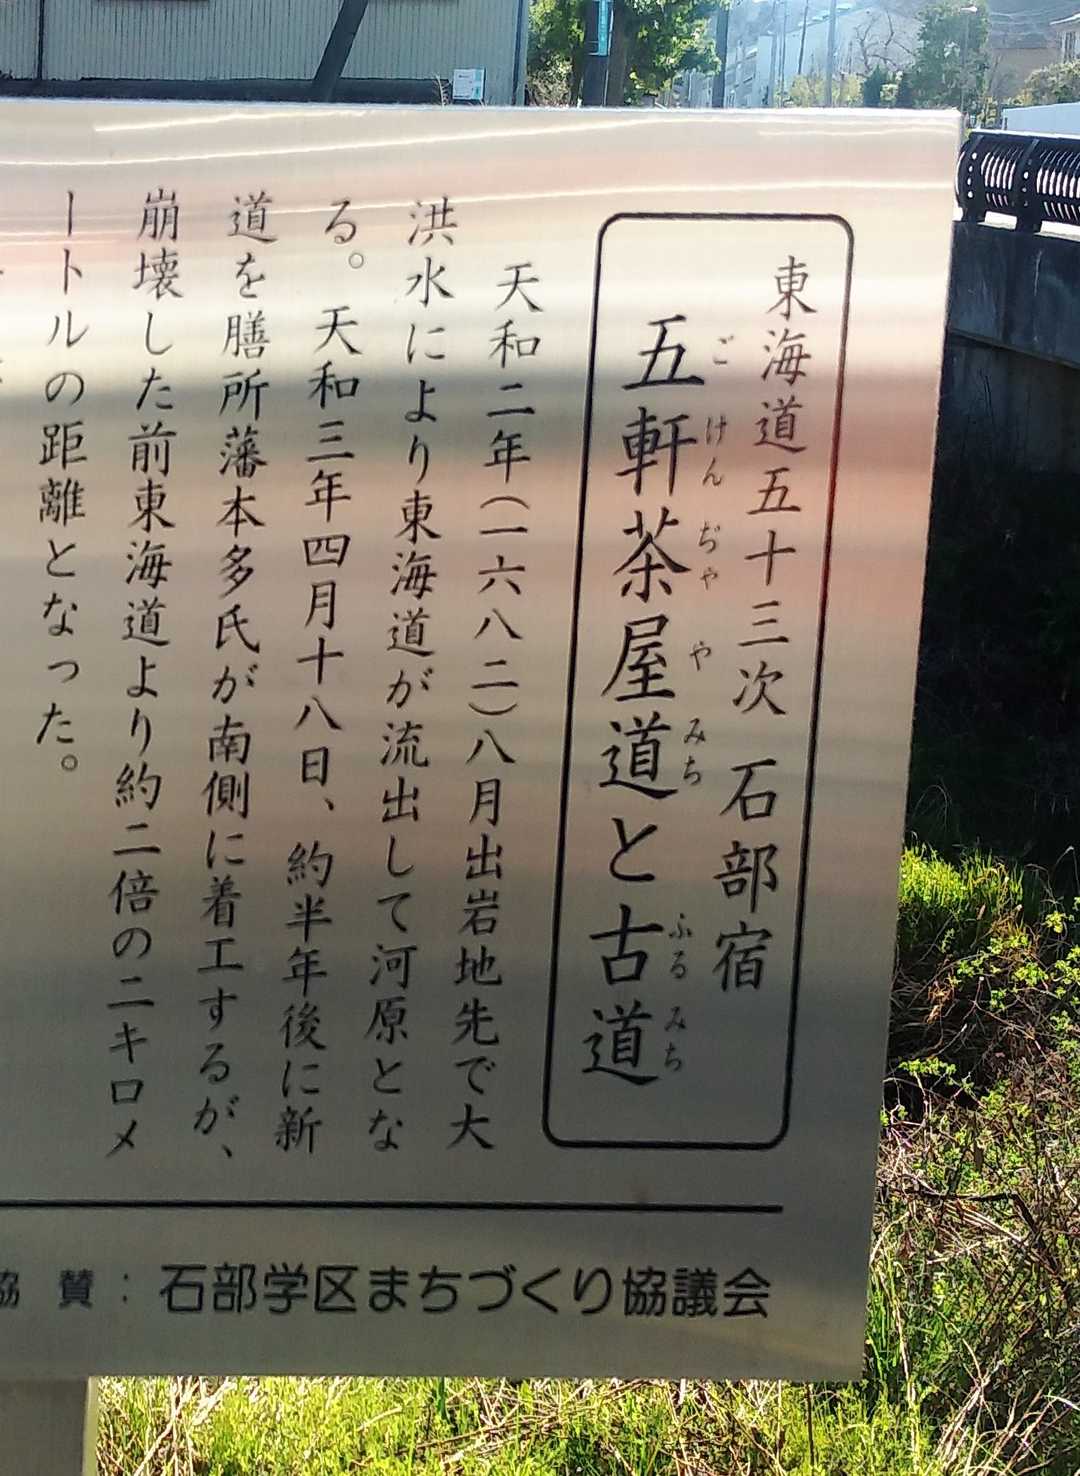 東海道五十三次 石部宿
五軒茶屋道と古道
ごけんぢゃやみち ふるみち
天和二年（一六八二）八月出岩地先で大
洪水により東海道が流出して河原とな
る。天和三年四月十八日、約半年後に新
道を膳所藩本多氏が南側に着工するが、
崩壊した前東海道より約二倍の二キロメ
ートルの距離となった。
協賛：石部学区まちづくり協議会